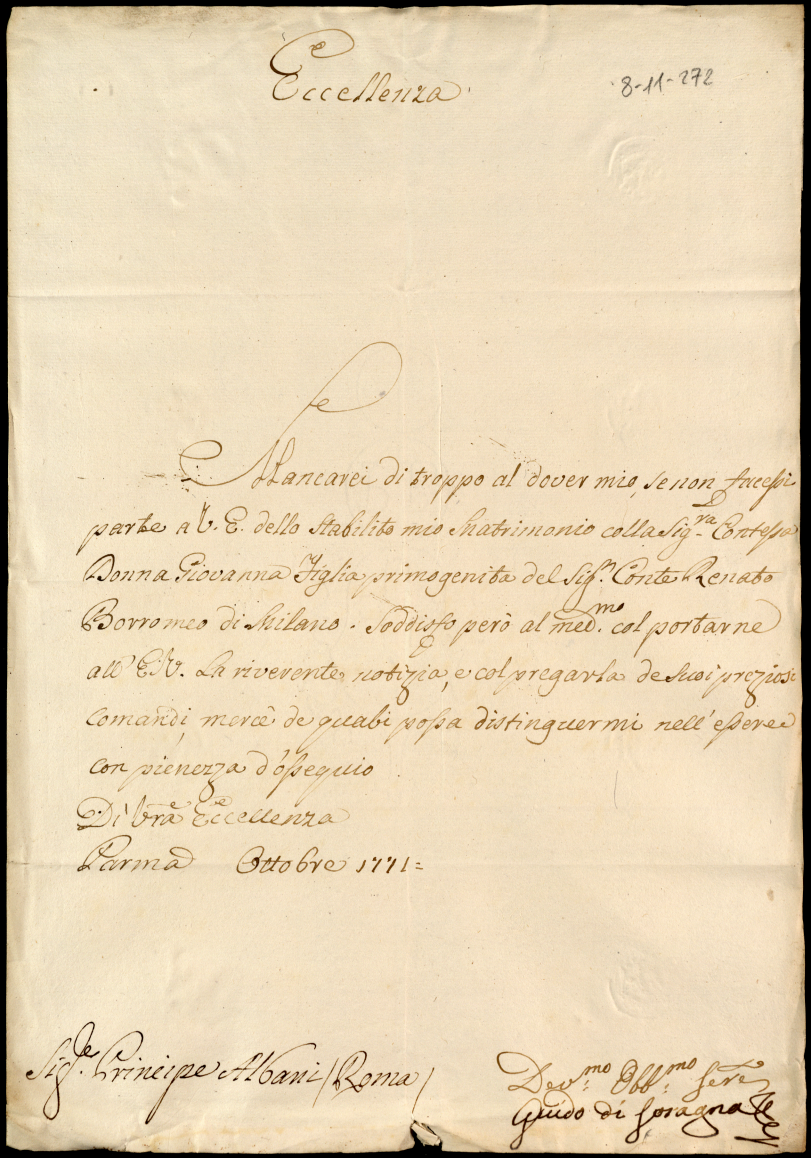 Eccellenza
8-11-272
Mancarei di troppo al dover mio, se non facessi
parte a V. E. dello stabilito mio Matrimonio colla Sig.ra Contessa
Donna Giovanna Figlia primogenita del Sig.r Conte Renato
Borromeo di Milano. Soddisfo però al med.mo col portarne
all' E.V. la riverente notizia, e col pregarla de suoi preziosi
comandi, mercè de quali possa distinguermi nell' essere
con pienezza d'ossequio
Di Vrã Eccellenza
Parma Ottobre 1771=
Sig.re Principe Albani / Roma /
Dev.mo Obb.mo Serre
Guido di Soragna